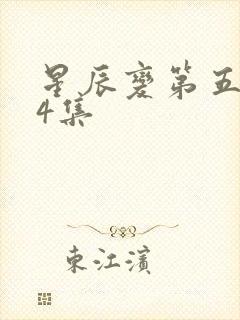 星辰变第五
4集
东江滨